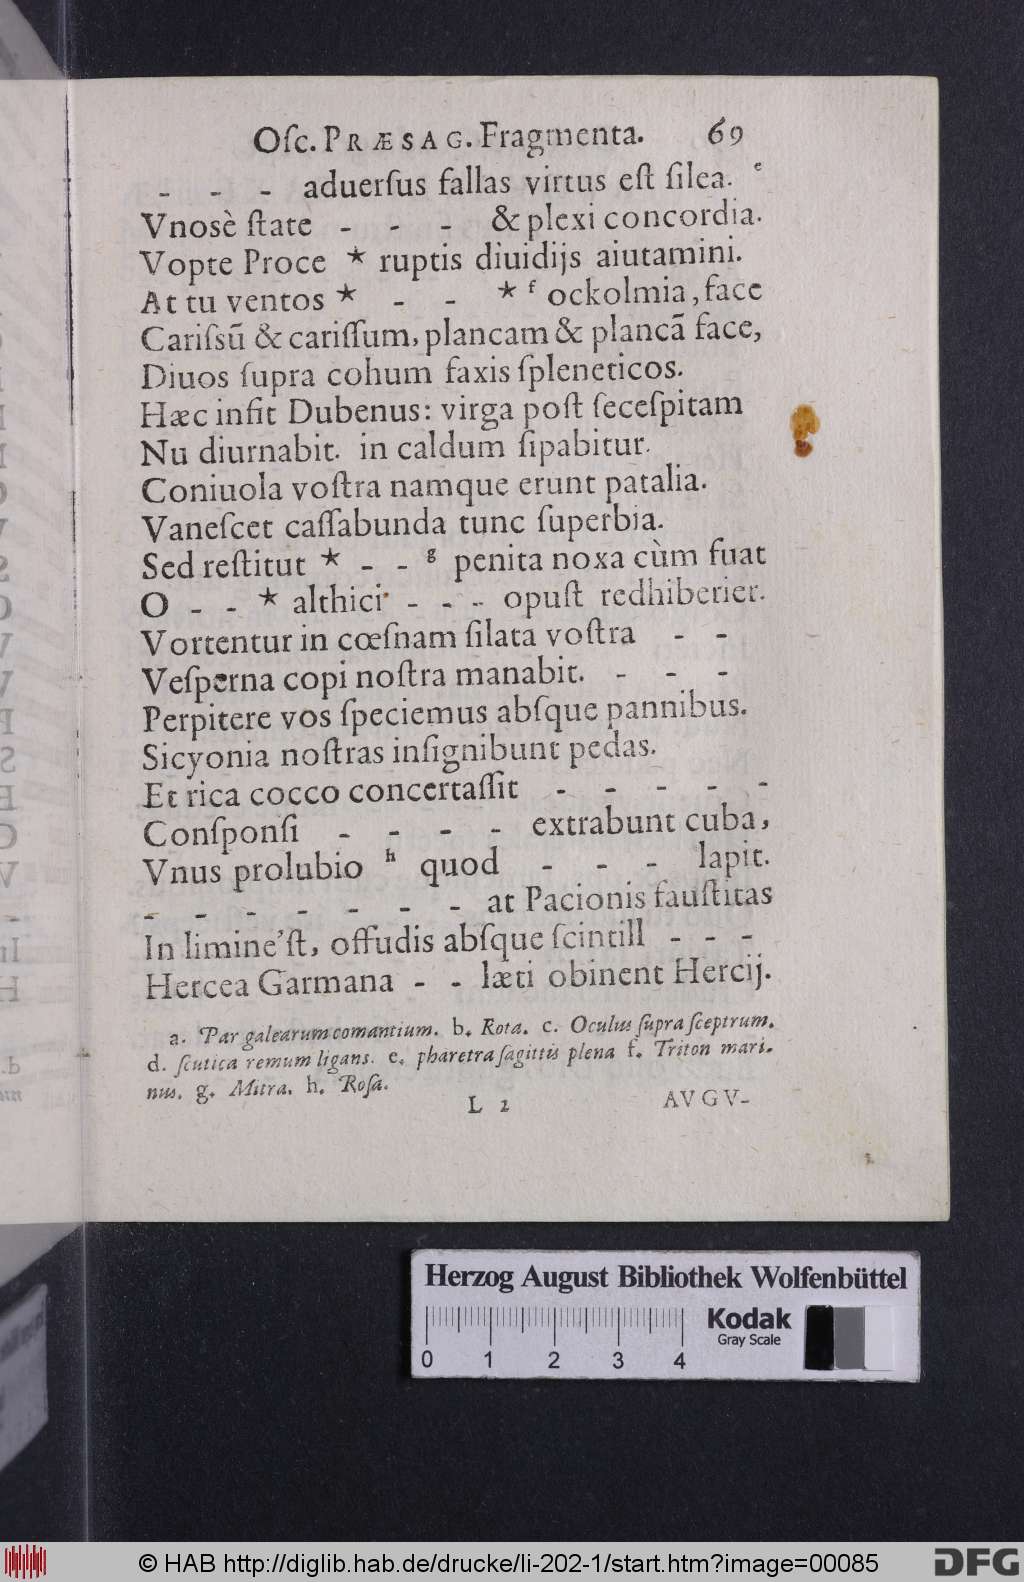 Oſc. PRÆSAG. Fragmenta. 69
- - - aduerſus fallas virtus eſt ſilea. e
Vnosè ſtate - - - & plexi concordia.
Vopte Proce * ruptis diuidijs aiutamini.
At tu ventos * - - * f ockolmia, face
Cariſsū & cariſſum, plancam & plancā face,
Diuos ſupra cohum faxis ſpleneticos.
Hæc infit Dubenus: virga poſt ſeceſpitam
Nu diurnabit. in caldum ſipabitur.
Coniuola voſtra namque erunt patalia.
Vaneſcet caſſabunda tunc ſuperbia.
Sed reſtitut * - - g penita noxa cùm fuat
O - - * althici - - - opuſt redhiberier.
Vortentur in cœſnam ſilata voſtra - -
Veſperna copi noſtra manabit. - - -
Perpitere vos ſpeciemus abſque pannibus.
Sicyonia noſtras inſignibunt pedas.
Et rica cocco concertaſſit - - - - -
Conſponſi - - - - extrabunt cuba,
Vnus prolubio h quod - - - lapit.
- - - - - - - at Pacionis fauſtitas
In limine'ſt, offudis abſque ſcintill - - -
Hercea Garmana - - læti obinent Hercij.
a. Par galearum comantium. b. Rota. c. Oculus ſupra ſceptrum.
d. ſcutica remum ligans. e. pharetra ſagittis plena f. Triton mari-
nus. g. Mitra. h. Roſa.
L 2 AVGV-
Herzog August Bibliothek Wolfenbüttel
Kodak
Gray Scale
0 1 2 3 4
© HAB http://diglib.hab.de/drucke/li-202-1/start.htm?image=00085
DFG